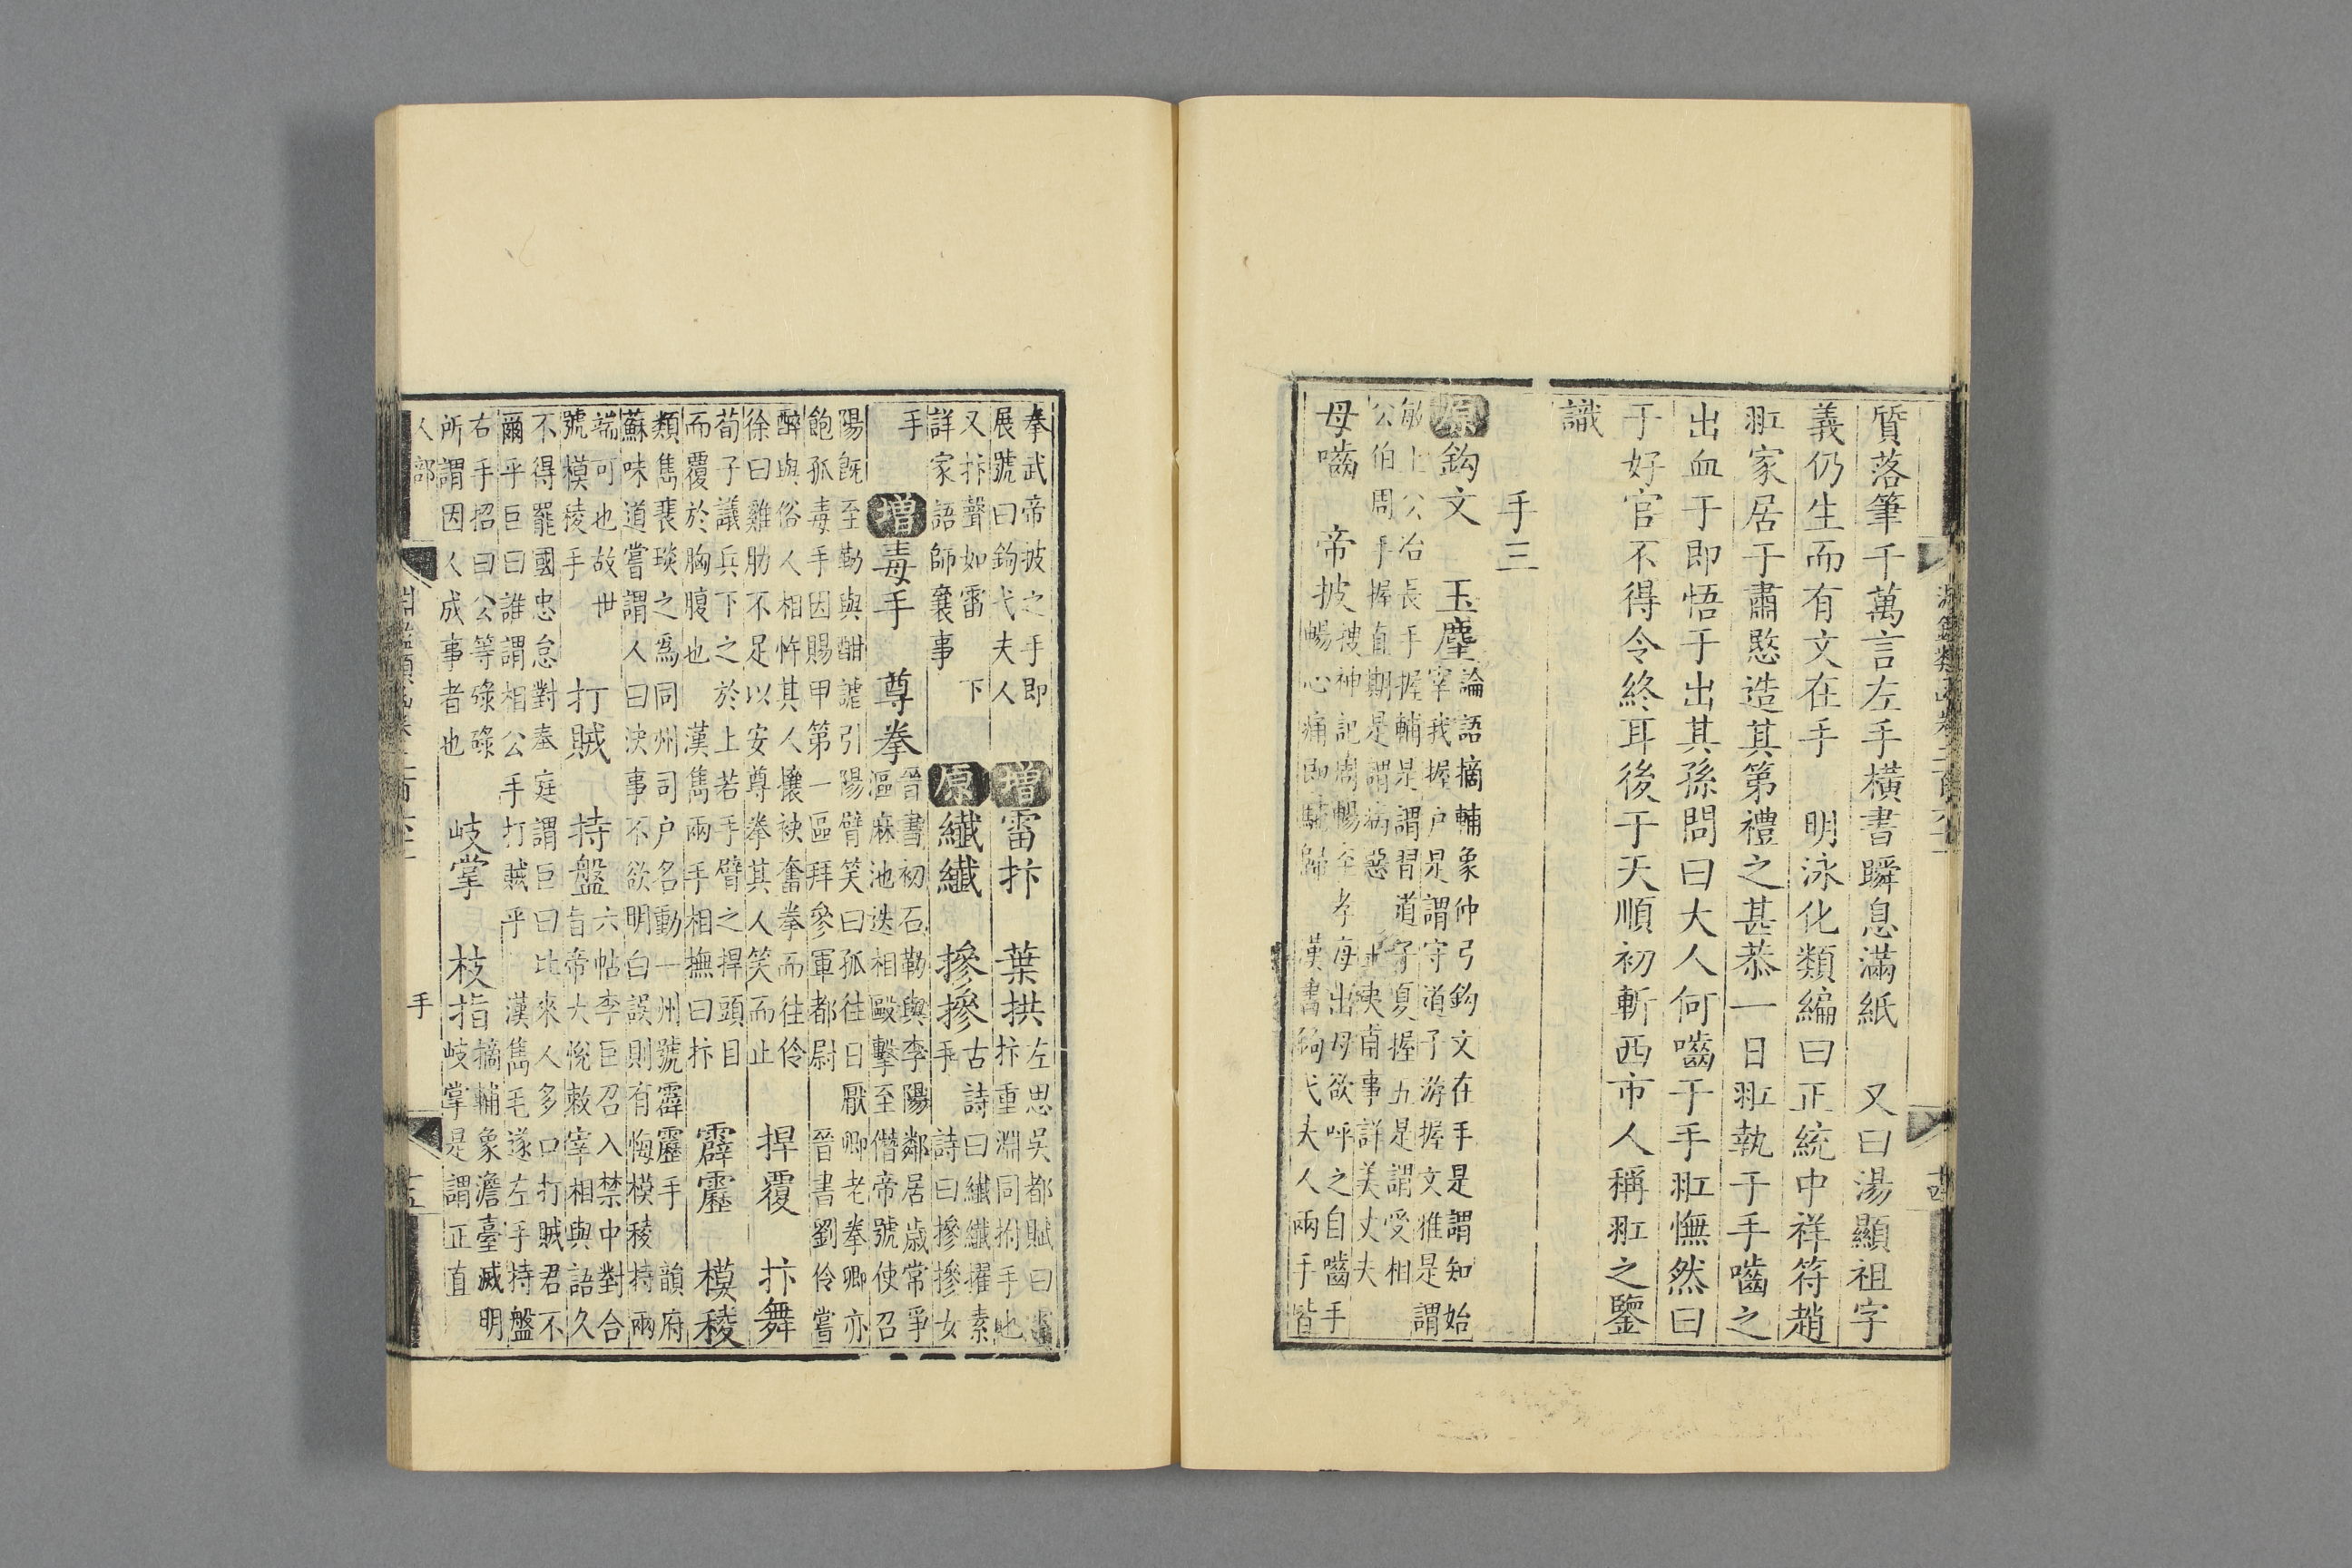 質落筆千萬言左手橫書瞬息滿紙　又曰湯顯祖字
義仍生而有文在手　明泳化類編曰正統中祥符趙
𦐇家居于肅愍造其第禮之甚恭一日𦐇執于手嚙之
出血于即悟于出其孫問曰大人何嚙于手𦐇憮然曰
于好官不得令終耳後于天順初斬西市人稱𦐇之鑒
識
手三
原鈎文　玉塵
論語摘輔象仲弓鈎文在手是謂知始
宰我握户是謂守道子游握文雅是謂
敏士公冶長手握輔是謂習道子夏握五是謂受相
公伯周手握直期是謂病惡
事詳美丈夫
母嚙　帝披
搜神記周暢至孝母出母欲呼之自嚙手
暢心痛即馳歸　漢書鈎弋夫人兩手皆
十四
拳武帝披之手即
展號曰鈎弋夫人
增雷抃　葉拱
左思吳都賦曰
抃重淵同拊手也
又抃聲如雷　下
詳家語師襄事
原纖纖　摻摻
古詩曰纖纖擢素
手　詩曰摻摻女
手
增毒手　尊拳
晉書初石勒與李陽鄰居歲常爭
漚麻池迭相毆擊至僭帝號使召
陽既至勒與酣謔引陽臂笑曰孤往日厭卿老拳卿亦
飽孤毒手因賜甲第一區拜參軍都尉　晉書劉伶嘗
醉與俗人相忤其人攘袂奮拳而往伶
徐曰雞肋不足以安尊拳其人笑而止
捍覆　抃舞
荀子議兵下之於上若手臂之捍頭目
而覆於胸腹也　漢雋兩手相撫曰抃
霹靂　模稜
韻府
類雋裴琰之爲同州司户名動一州號霹靂手
蘇味道嘗謂人曰決事不欲明白誤則有悔模稜持兩
端可也故世
號模稜手
打賊　持盤
六帖李巨召入禁中對合
旨帝大悅敕宰相與語久
不得罷國忠怠對奉庭謂巨曰比來人多口打賊君不
爾乎巨曰誰謂相公手打賊乎　漢雋毛遂左手持盤
右手招曰公等碌碌
所謂因人成事者也
岐掌　枝指
摘輔象澹臺滅明
岐掌是謂正直
人部　手